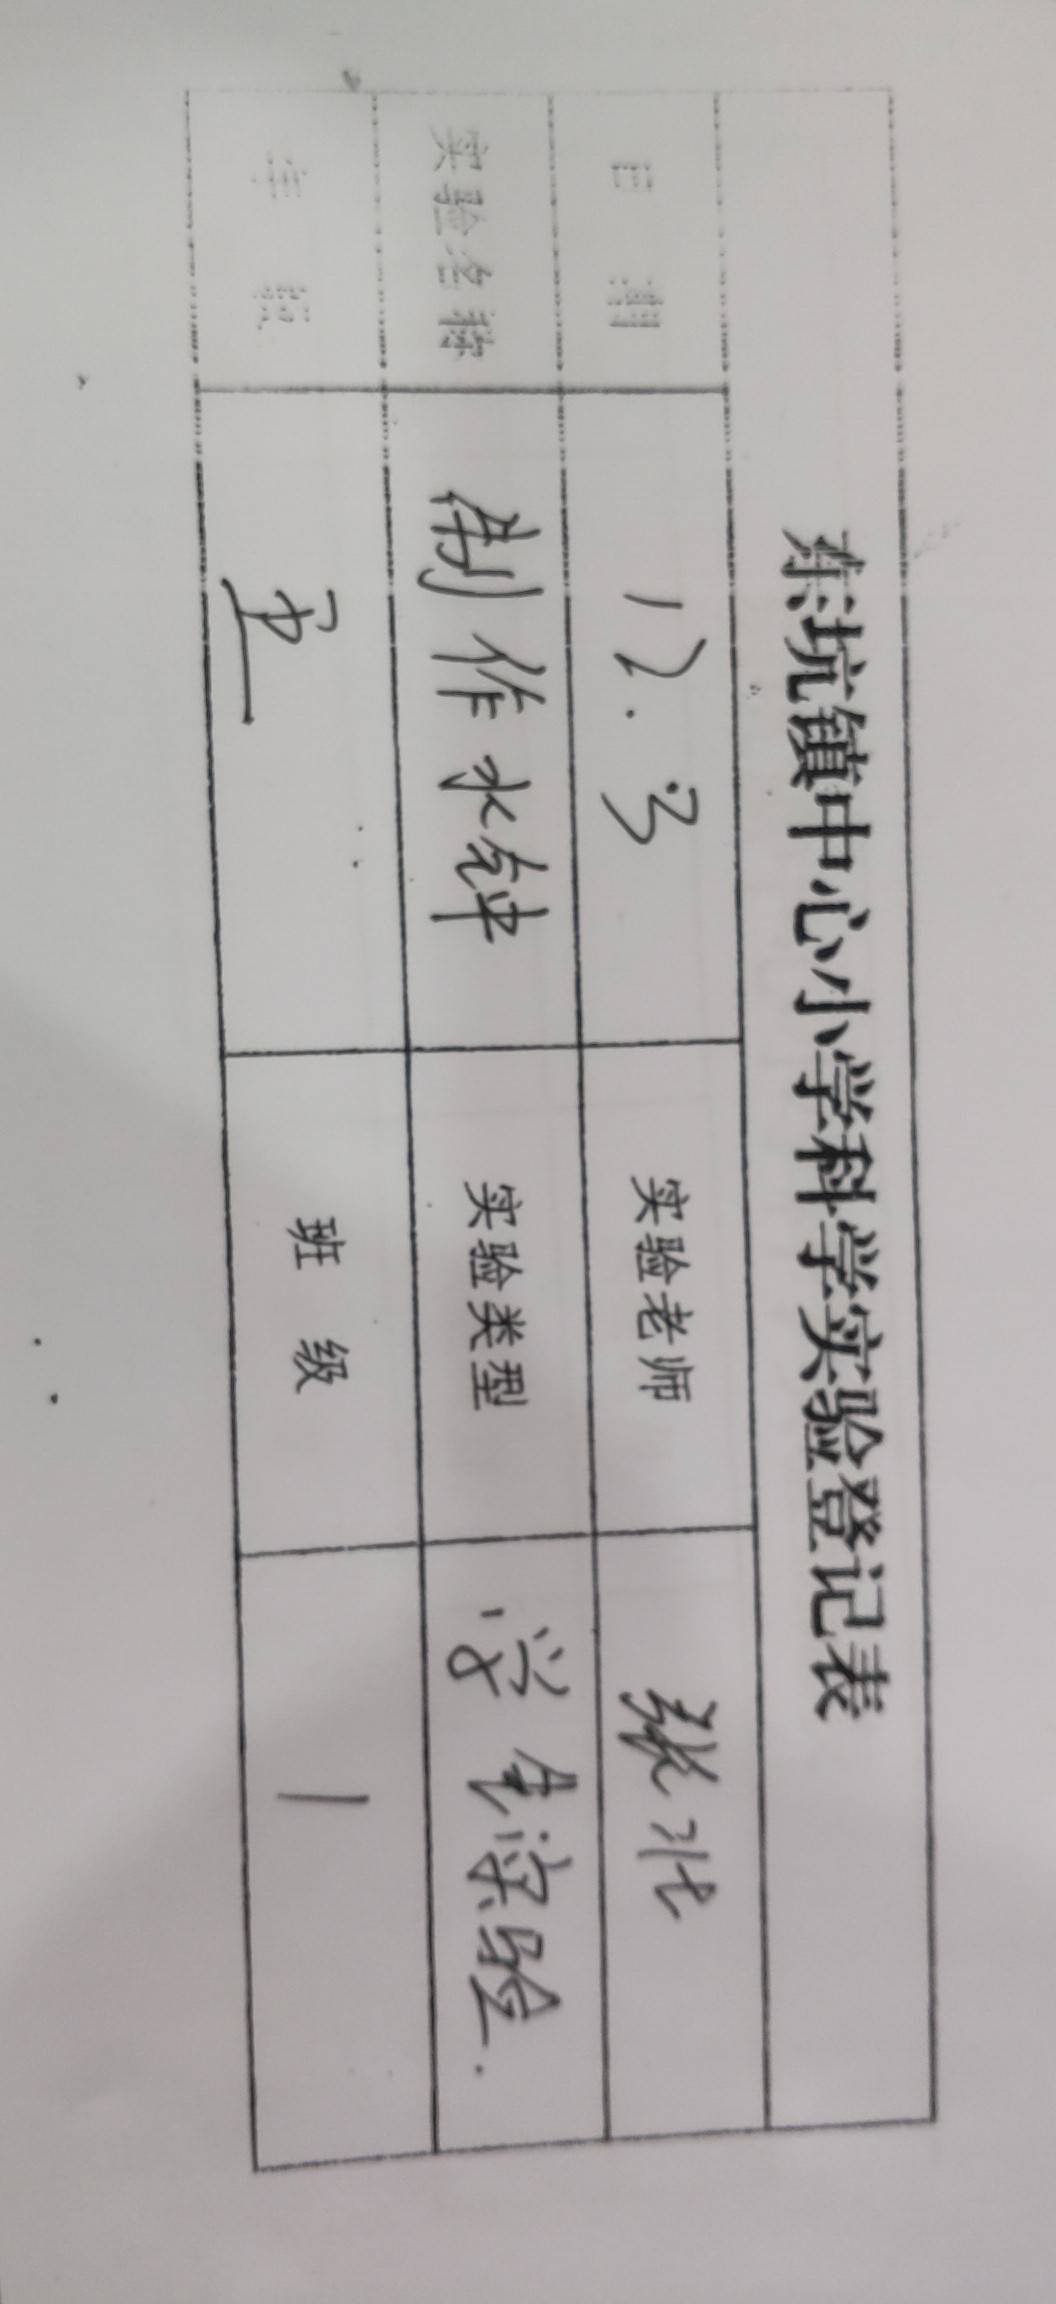 东坑镇中心小学科学实验登记表
日 期 12.3 实验老师 张北
实验名称 制作水钟 实验类型 学生实验.
年 级 五 班 级 1